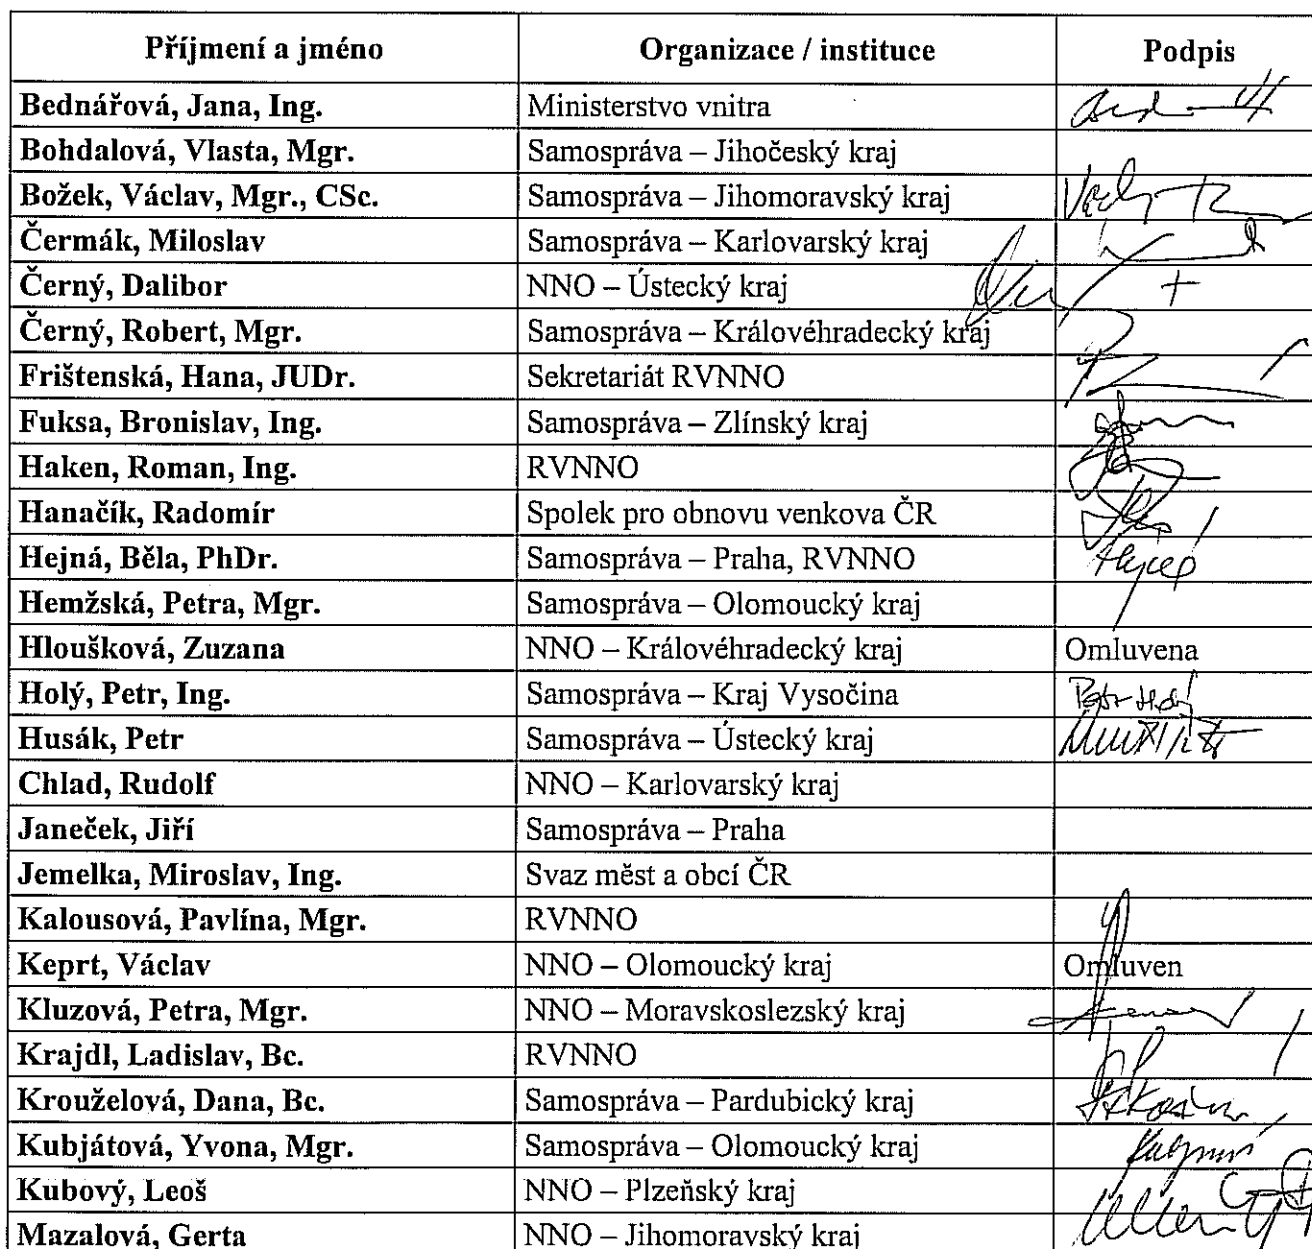 Příjmení a jméno Organizace / instituce Podpis
Bednářová, Jana, Ing. Ministerstvo vnitra
Bohdalová, Vlasta, Mgr. Samospráva – Jihočeský kraj
Božek, Václav, Mgr., CSc. Samospráva – Jihomoravský kraj
Čermák, Miloslav Samospráva – Karlovarský kraj
Černý, Dalibor NNO – Ústecký kraj
Černý, Robert, Mgr. Samospráva – Královéhradecký kraj
Frištenská, Hana, JUDr. Sekretariát RVNNO
Fuksa, Bronislav, Ing. Samospráva – Zlínský kraj
Haken, Roman, Ing. RVNNO
Hanačík, Radomír Spolek pro obnovu venkova ČR
Hejná, Běla, PhDr. Samospráva – Praha, RVNNO
Hemžská, Petra, Mgr. Samospráva – Olomoucký kraj
Hloušková, Zuzana NNO – Královéhradecký kraj Omluvena
Holý, Petr, Ing. Samospráva – Kraj Vysočina
Husák, Petr Samospráva – Ústecký kraj
Chlad, Rudolf NNO – Karlovarský kraj
Janeček, Jiří Samospráva – Praha
Jemelka, Miroslav, Ing. Svaz měst a obcí ČR
Kalousová, Pavlína, Mgr. RVNNO
Keprt, Václav NNO – Olomoucký kraj Omluven
Kluzová, Petra, Mgr. NNO – Moravskoslezský kraj
Krajdl, Ladislav, Bc. RVNNO
Krouželová, Dana, Bc. Samospráva – Pardubický kraj
Kubjátová, Yvona, Mgr. Samospráva – Olomoucký kraj
Kubový, Leoš NNO – Plzeňský kraj
Mazalová, Gerta NNO – Jihomoravský kraj